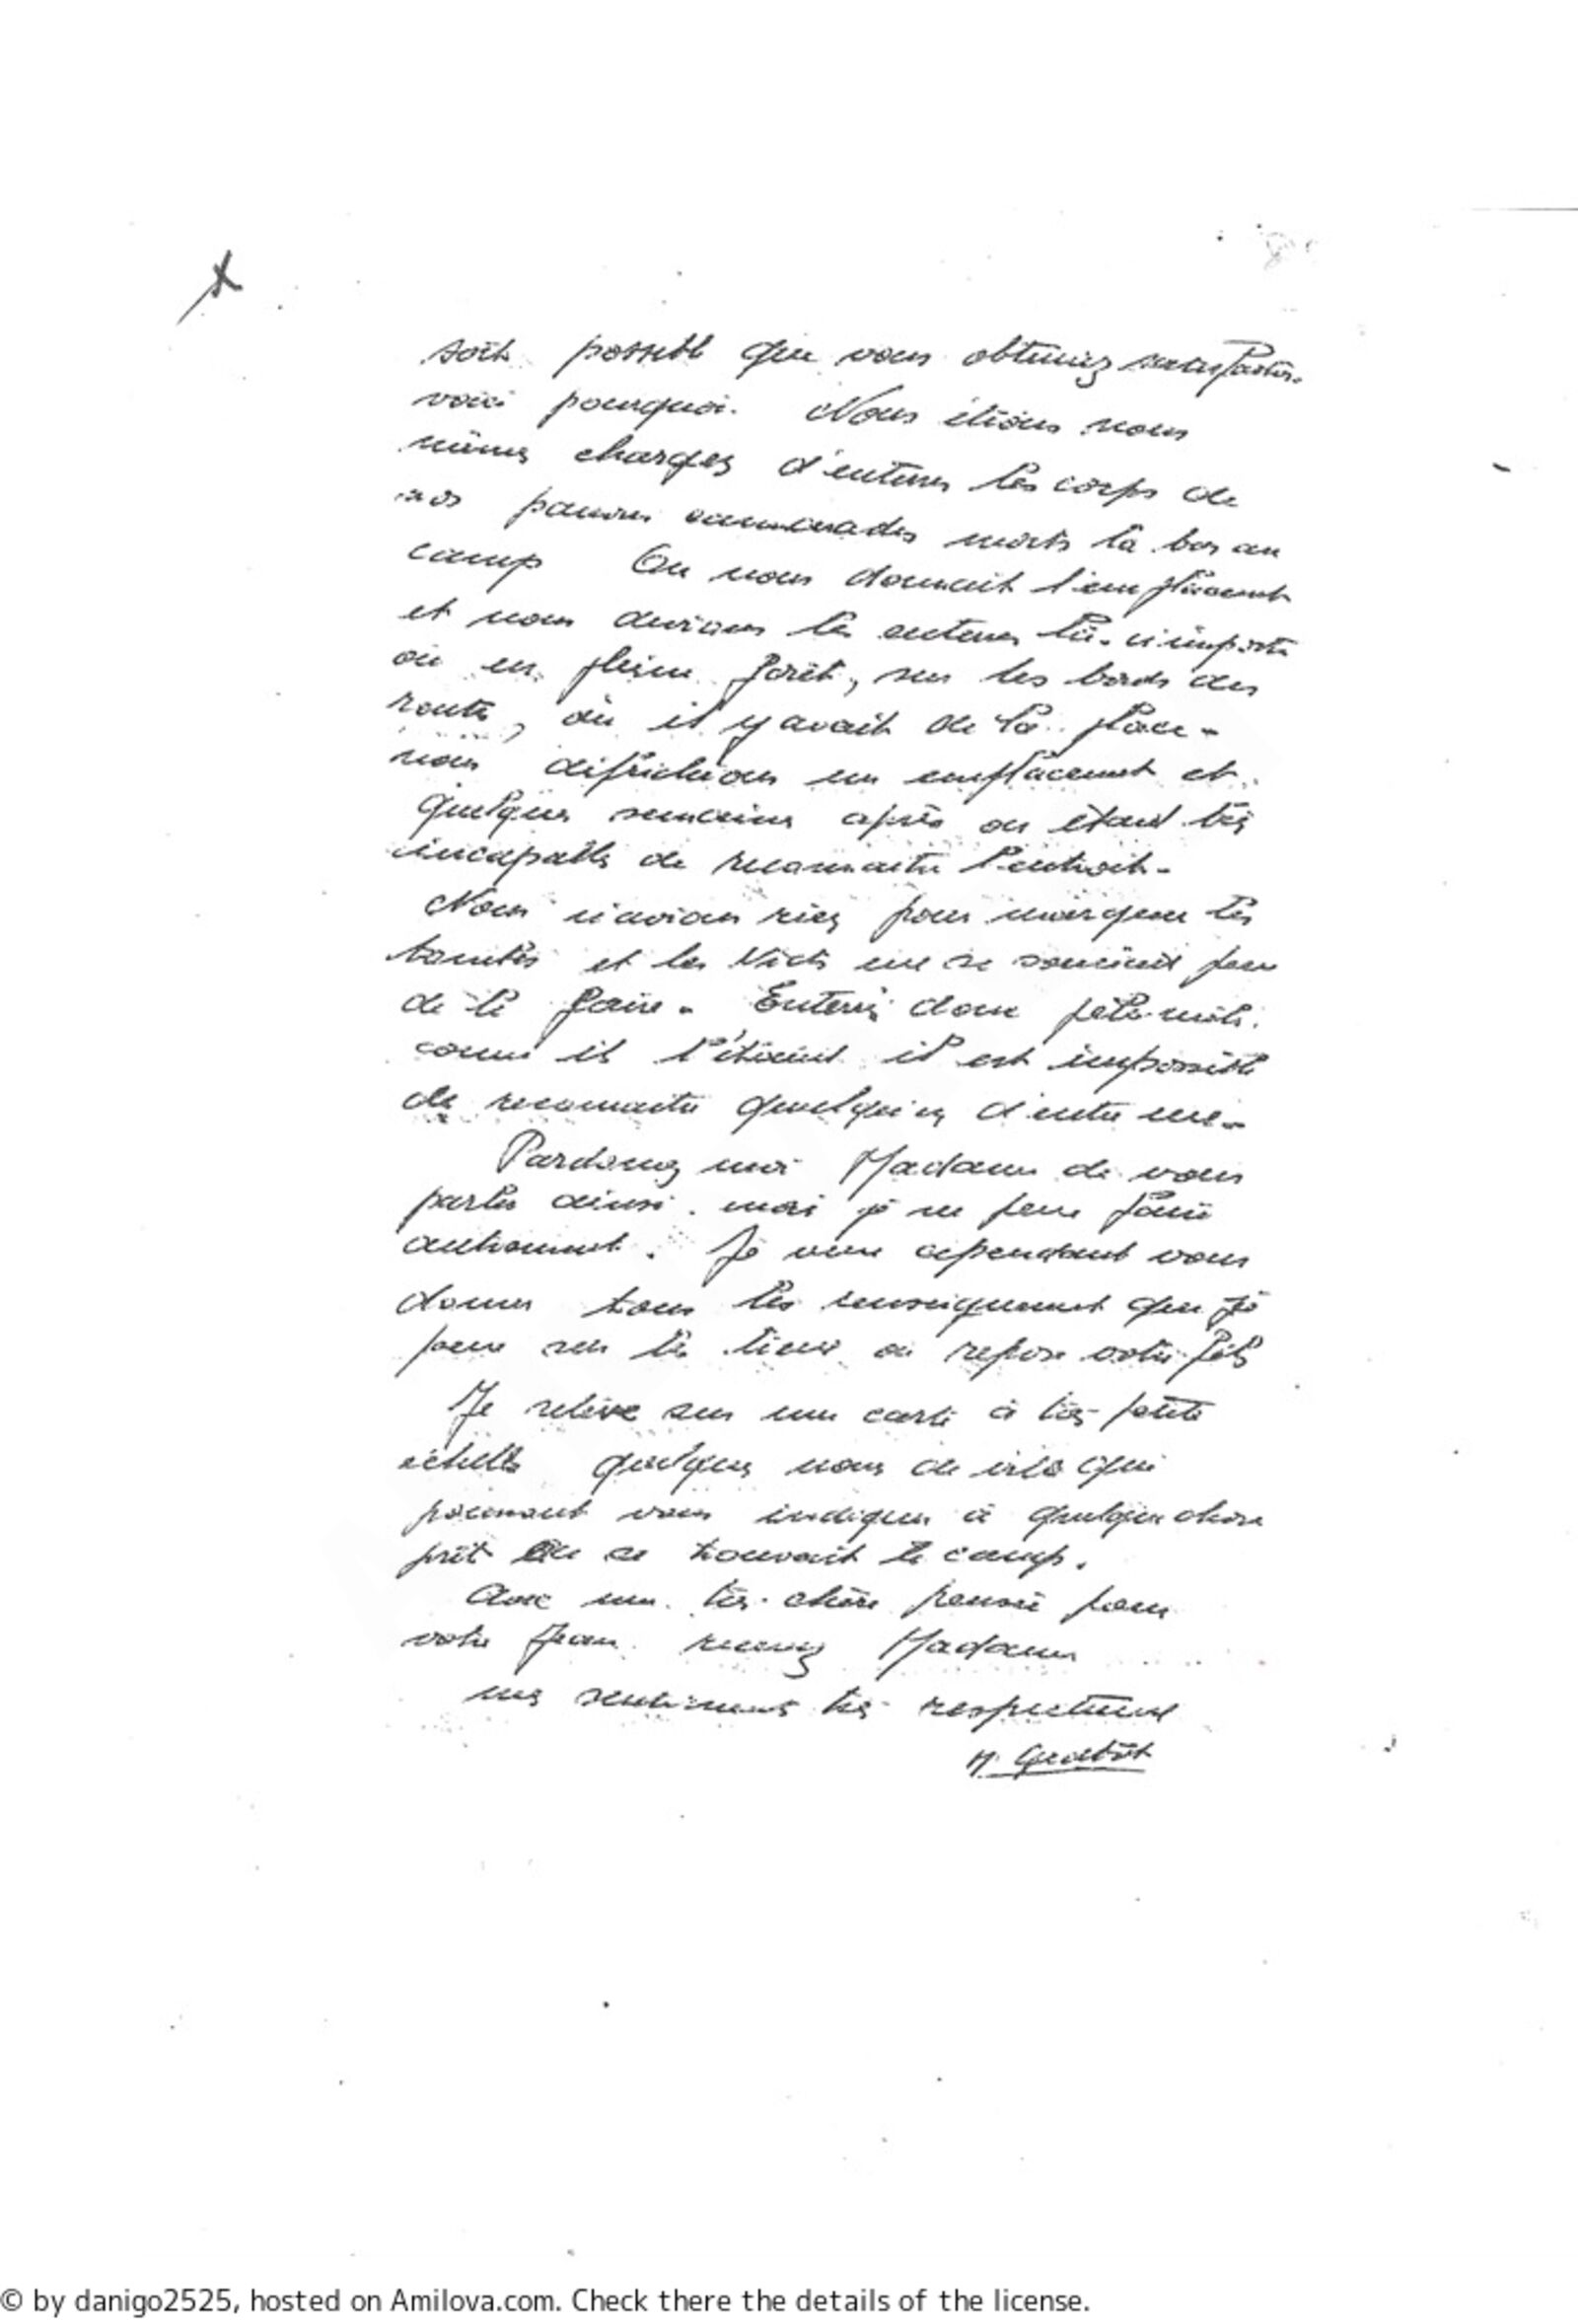 soit possible que vous obteniez satisfaction
voici pourquoi. Nous étions nous
mêmes chargés d'enterrer les corps de
nos pauvres cammarades morts là bas au
camp On nous donnait l'emplacement
et nous devions les enterrer là. n'importe
où en pleine forêt, sur les bords des
routes, où il y avait de la place -
nous défrichions un emplacement et
quelques semaines après on étaid très
incapable de reconnaitre l'endroit -
Nous n'avions rien pour marquer les
tombes et les
de le faire - Enterrés donc pêle-mêle
comme ils l'étaient il est impossible
de reconnaitre quelqu'un d'entre eux -
Pardonnez moi Madame de vous
parler ainsi. mais je ne peux faire
autrement. Je veux cependant vous
donner tous les renseignement que je
peux sur le lieux ou repose votre fils
Je relève sur une carte à très petite
échelle quelques noms de ville qui
pourront vous indiquer à quelque chose
prêt où se trouvait le camp.
Avec une très chère pensée pour
votre Jean recevez Madame
mes sentiments très respectueux